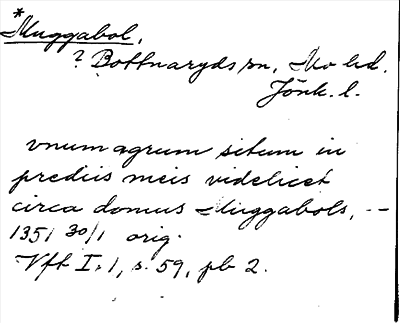 *Muggabol.
? Bottnaryds sn, Mo hd.
Jönk. l.
vnum agrum situm in
prediis meis videlicet
circa domus Muggabols, --
1351 30/1 orig.
Vfh I:1, s. 59, pb 2.